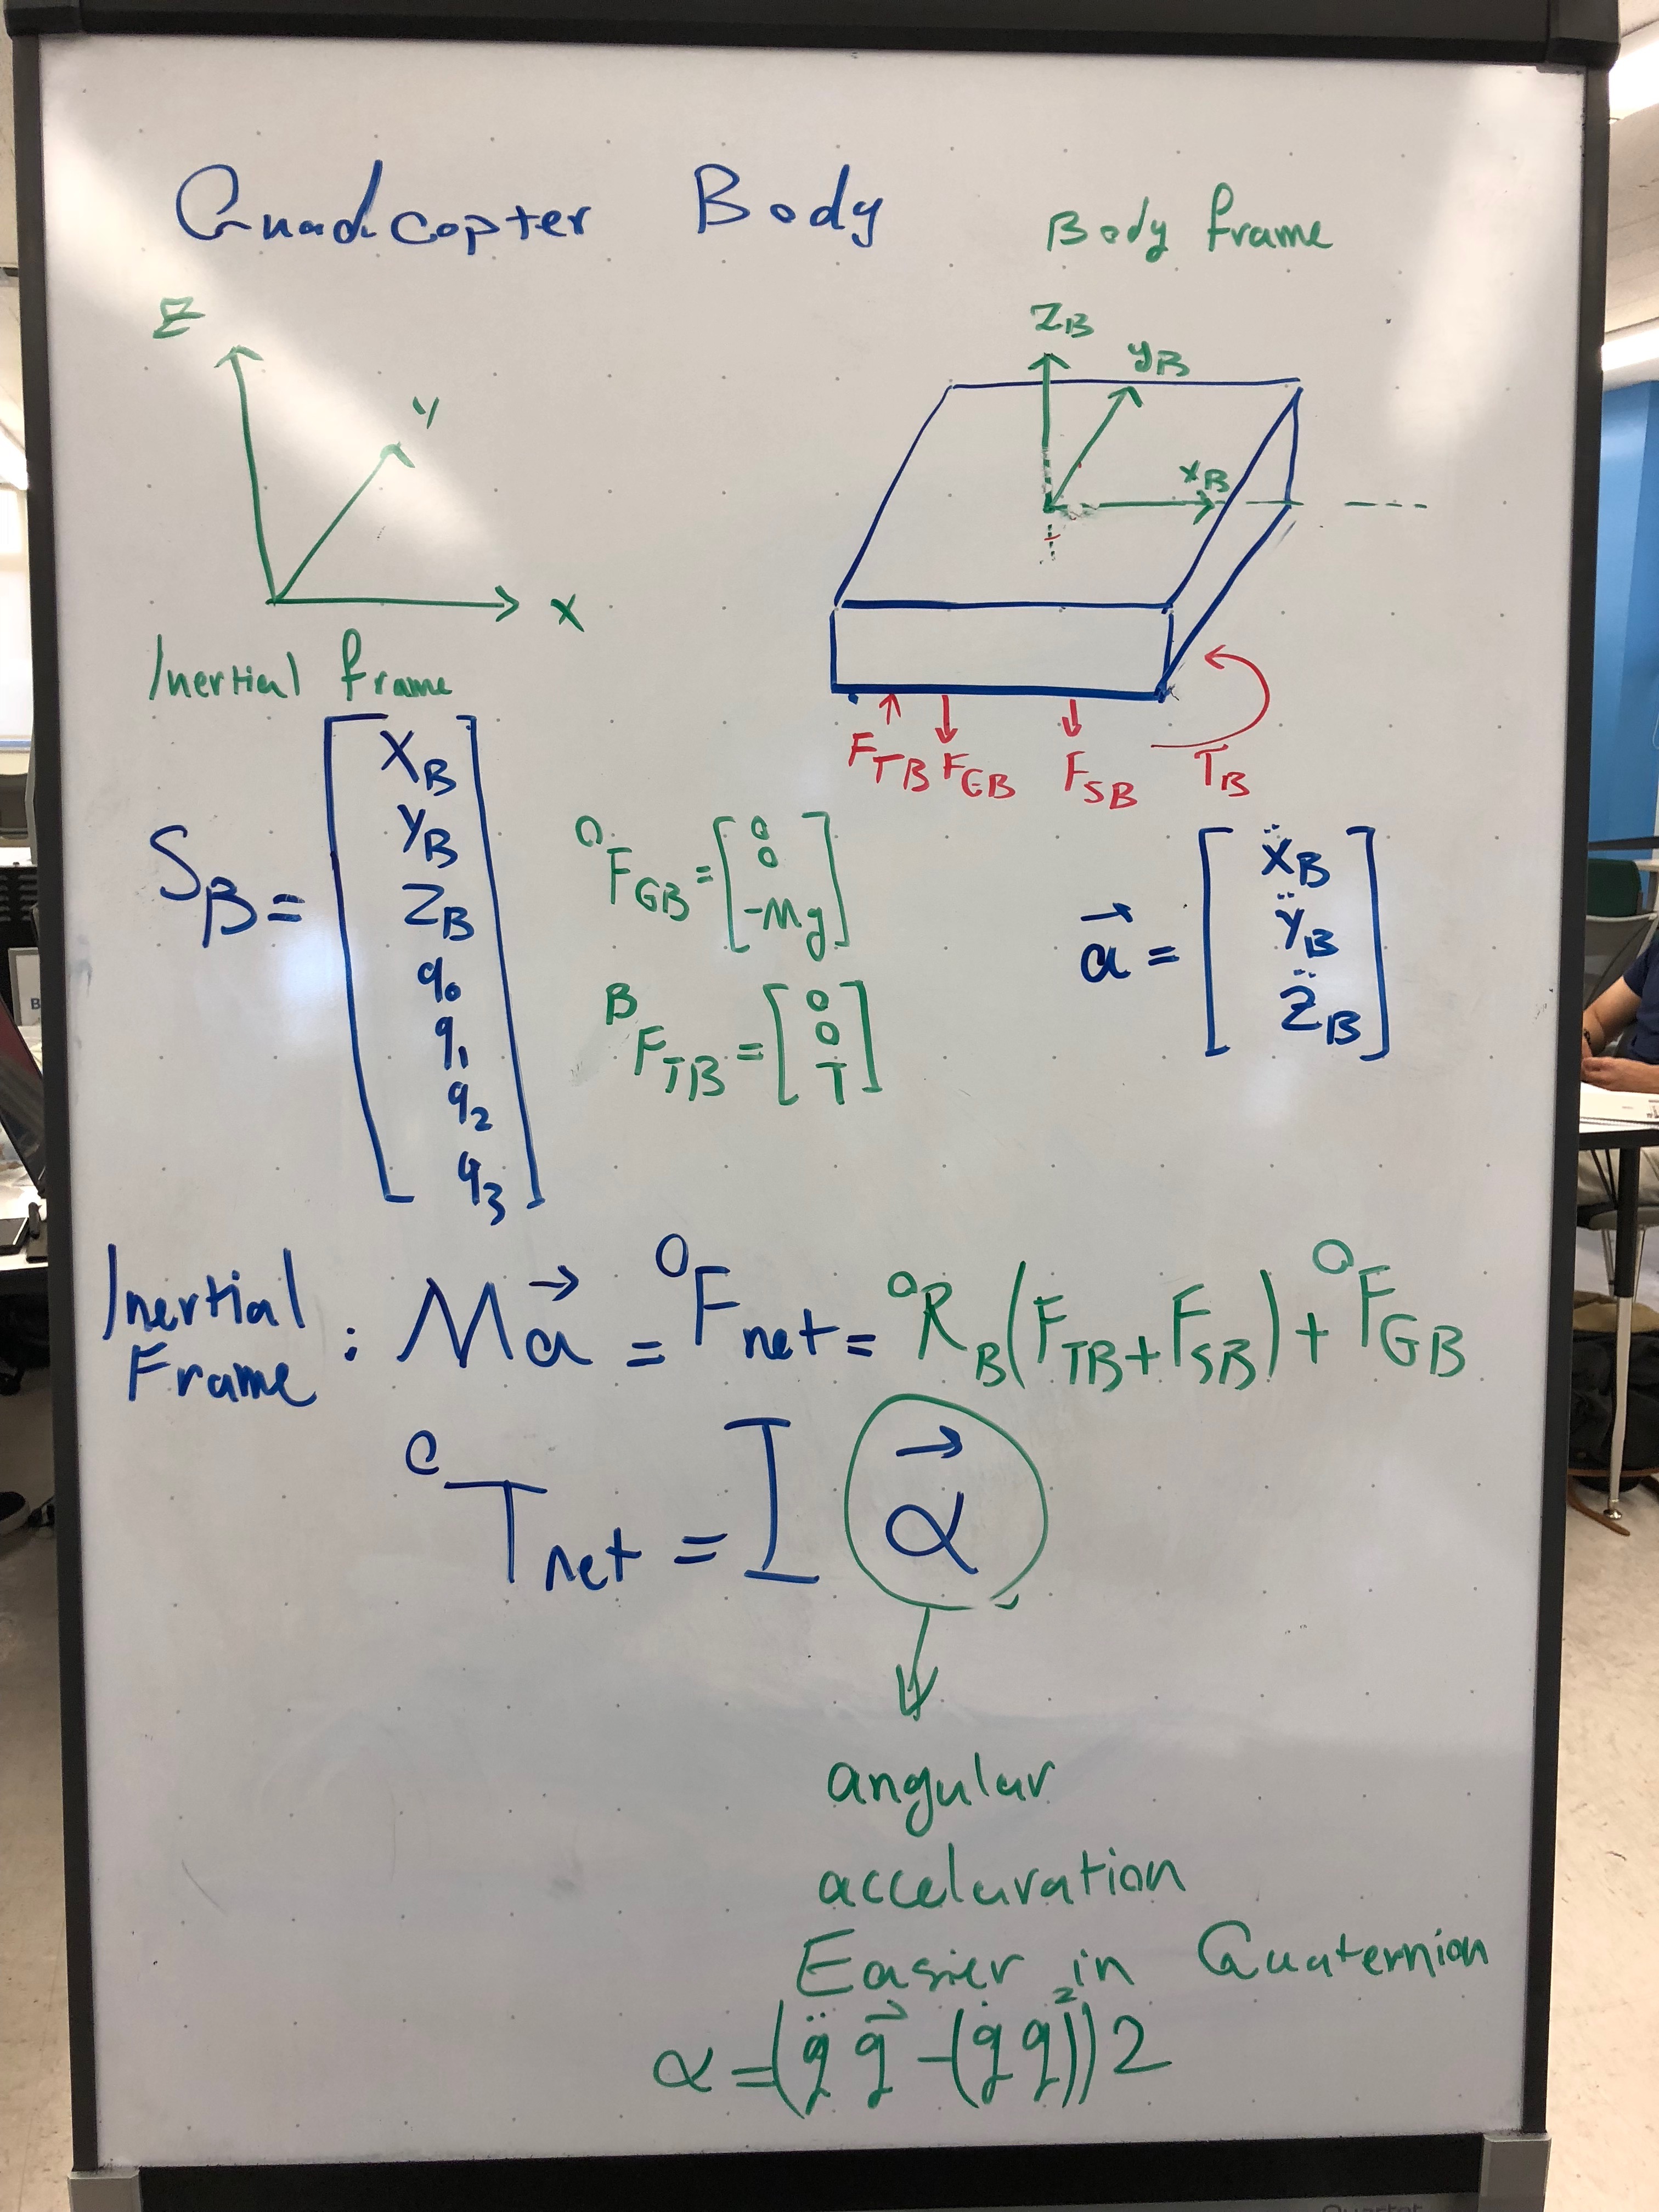 Quadcopter Body
Body frame
Z
Y
X
Inertial frame
Z_B
y_B
x_B
F_TB F_GB F_SB T_B
S_B = [X_B y_B Z_B q_0 q_1 q_2 q_3]
^O F_GB = [0 0 -Mg]
^B F_TB = [0 0 T]
a⃗ = [ẍ_B ÿ_B z̈_B]
Inertial Frame : M a⃗ = ^O F_net = ^O R_B (F_TB + F_SB) + ^O F_GB
^O T_net = I α⃗
angular
acceleration
Easier in Quaternion